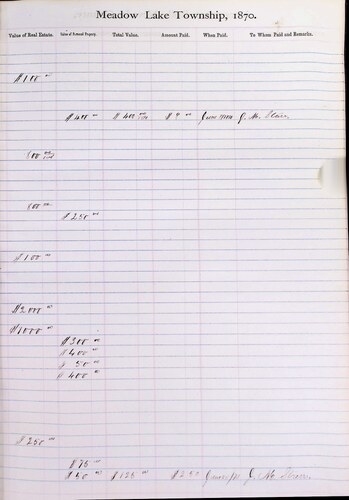 Meadow Lake Township, 1870.
Value of Real Estate. Value of Personal Property. Total Value. Amount Paid. When Paid. To Whom Paid and Remarks.
$100 00
$400 00 $400 00/100 $9 00 J. M.
800 00/100
800 00
$250 00
$100 00
$2000 00
$1000 00
$300 00
$400 00
$50 00
$400 00
$250 00
$75 00
$50 00 $125 00 $2 50 J. M.